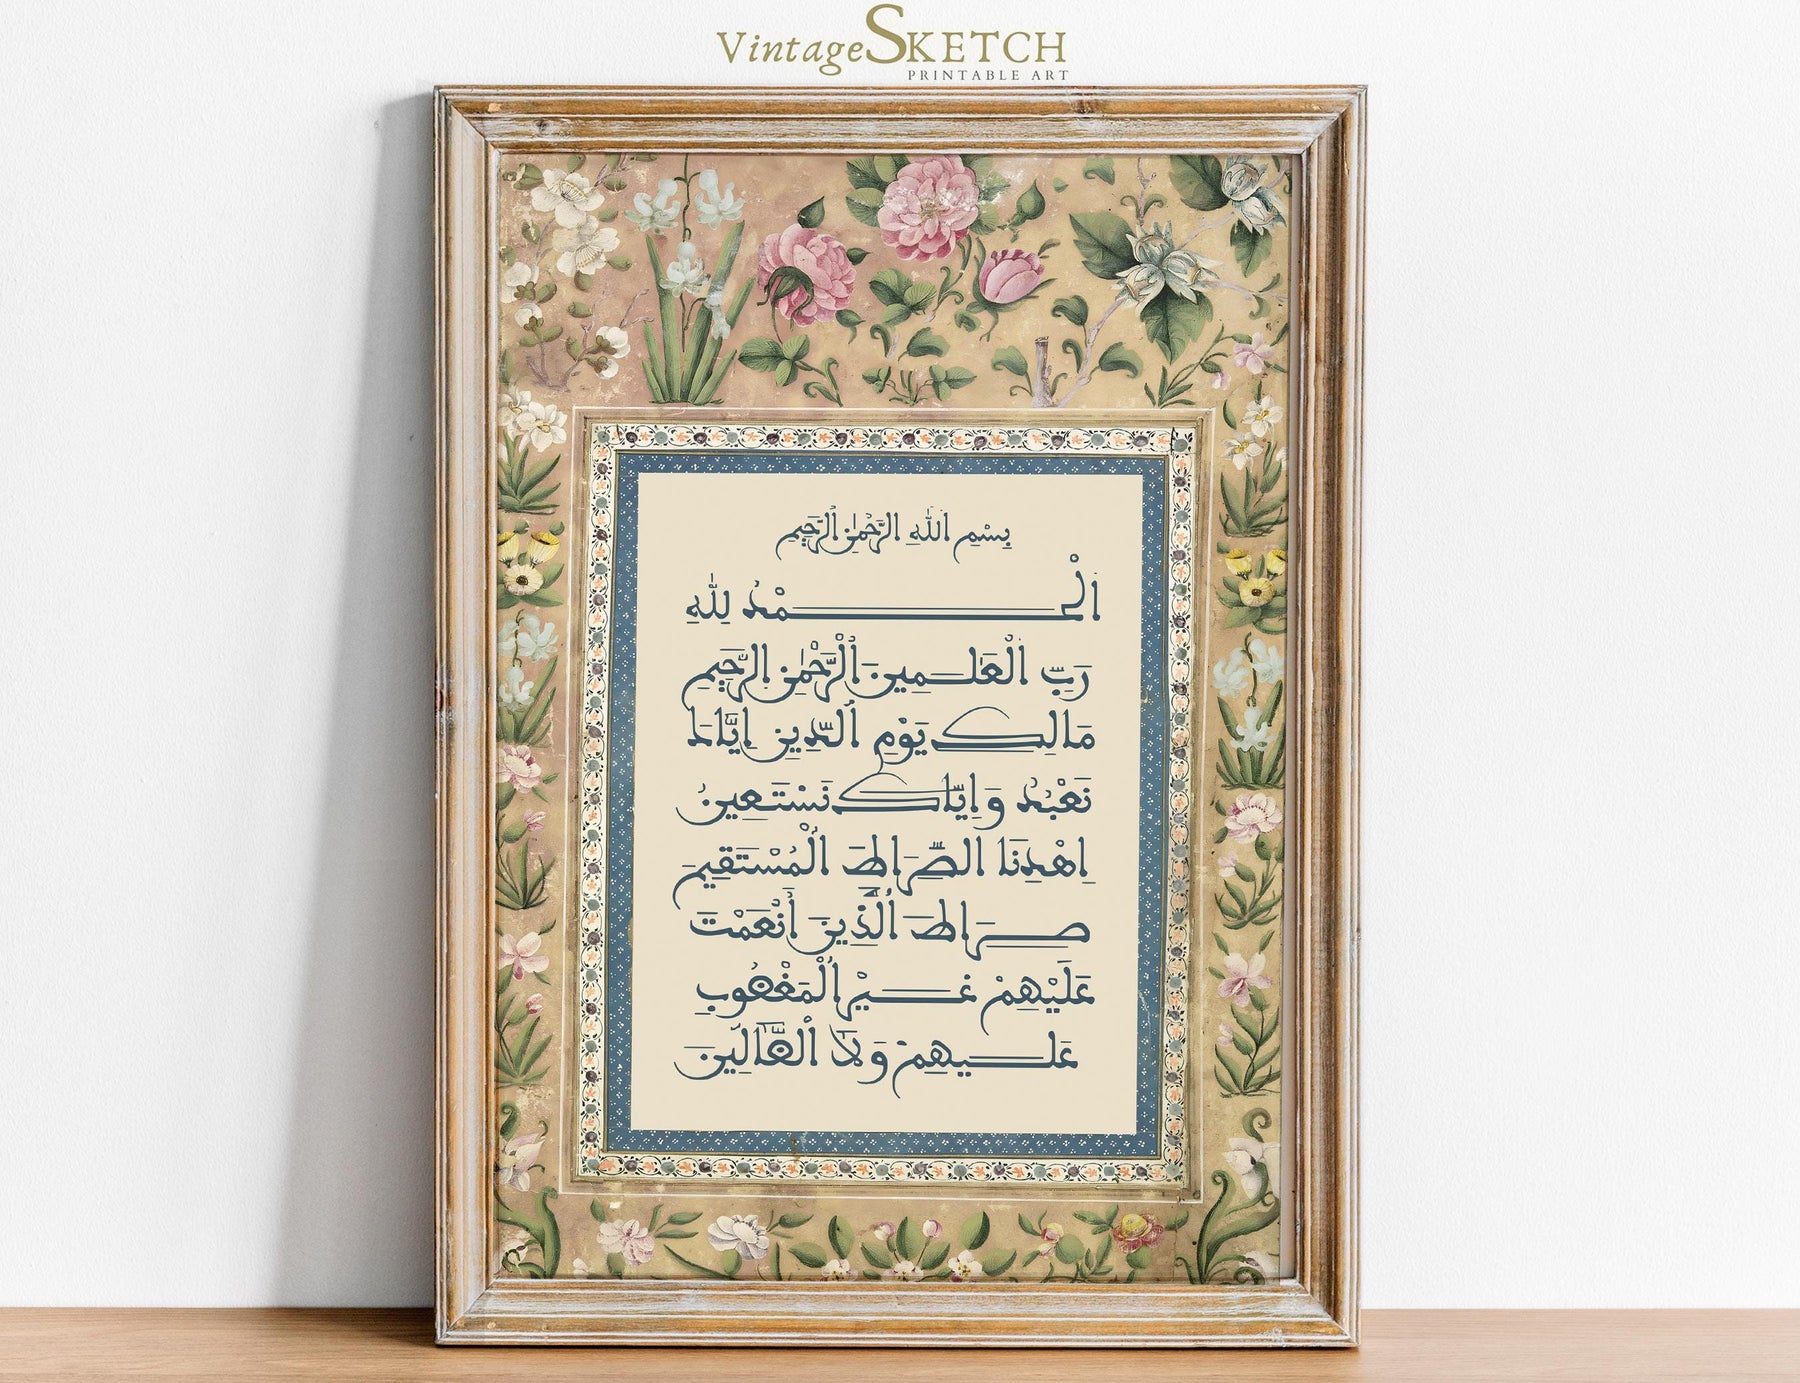 VintageSKETCH
PRINTABLE ART
بِسْمِ اللّٰهِ الرَّحْمٰنِ الرَّحِيمِ
اَلْحَمْدُ لِلّٰهِ
رَبِّ الْعَالَمِينَ الرَّحْمٰنِ الرَّحِيمِ
مَالِكِ يَوْمِ الدِّينِ اِيَّاكَ
نَعْبُدُ وَاِيَّاكَ نَسْتَعِينُ
اِهْدِنَا الصِّرَاطَ الْمُسْتَقِيمَ
صِرَاطَ الَّذِينَ أَنْعَمْتَ
عَلَيْهِمْ غَيْرِ الْمَغْضُوبِ
عَلَيْهِمْ وَلَا الضَّالِّينَ